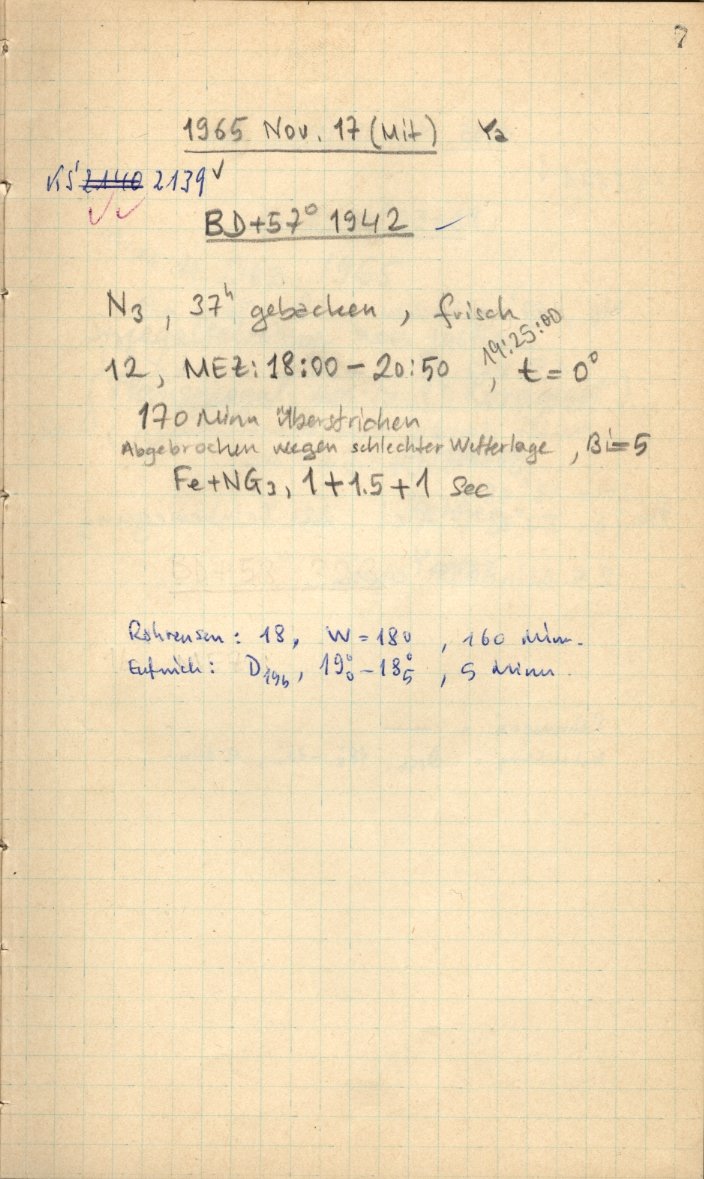 7
1965 Nov. 17 (Mit) Ya
KS 2140 2139 ✓
BD+57° 1942
N3, 37h gebacken, frisch
19:25:00
12, MEZ: 18:00 - 20:50, t = 0°
170 Minn überstrichen
Abgebrochen wegen schlechter Wetterlage, Bi=5
Fe+NG3, 1+1.5+1 Sec
18, W = 180, 160 Minn.
Entwick: D19h, 19°0 - 18°5, 5 Minn.